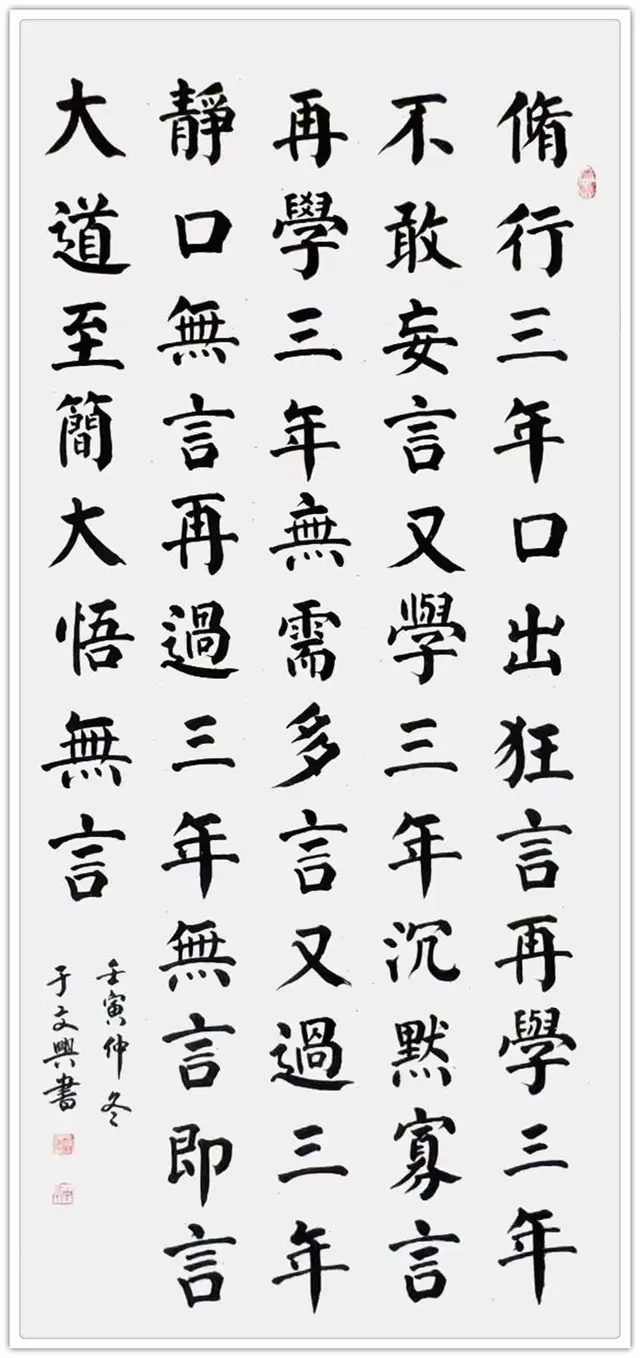 脩行三年口出狂言再學三年
不敢妄言又學三年沉默寡言
再學三年無需多言又過三年
靜口無言再過三年無言即言
大道至簡大悟無言
壬寅仲冬
于文興書